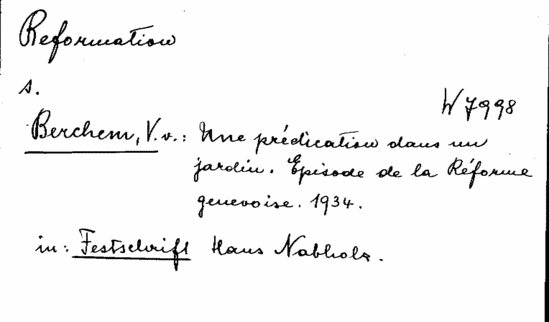 Reformation
s.
W 7998
Berchem, V. v.: Une prédication dans un
jardin. Episode de la Réforme
genevoise. 1934.
in: Festschrift Hans Nabholz.